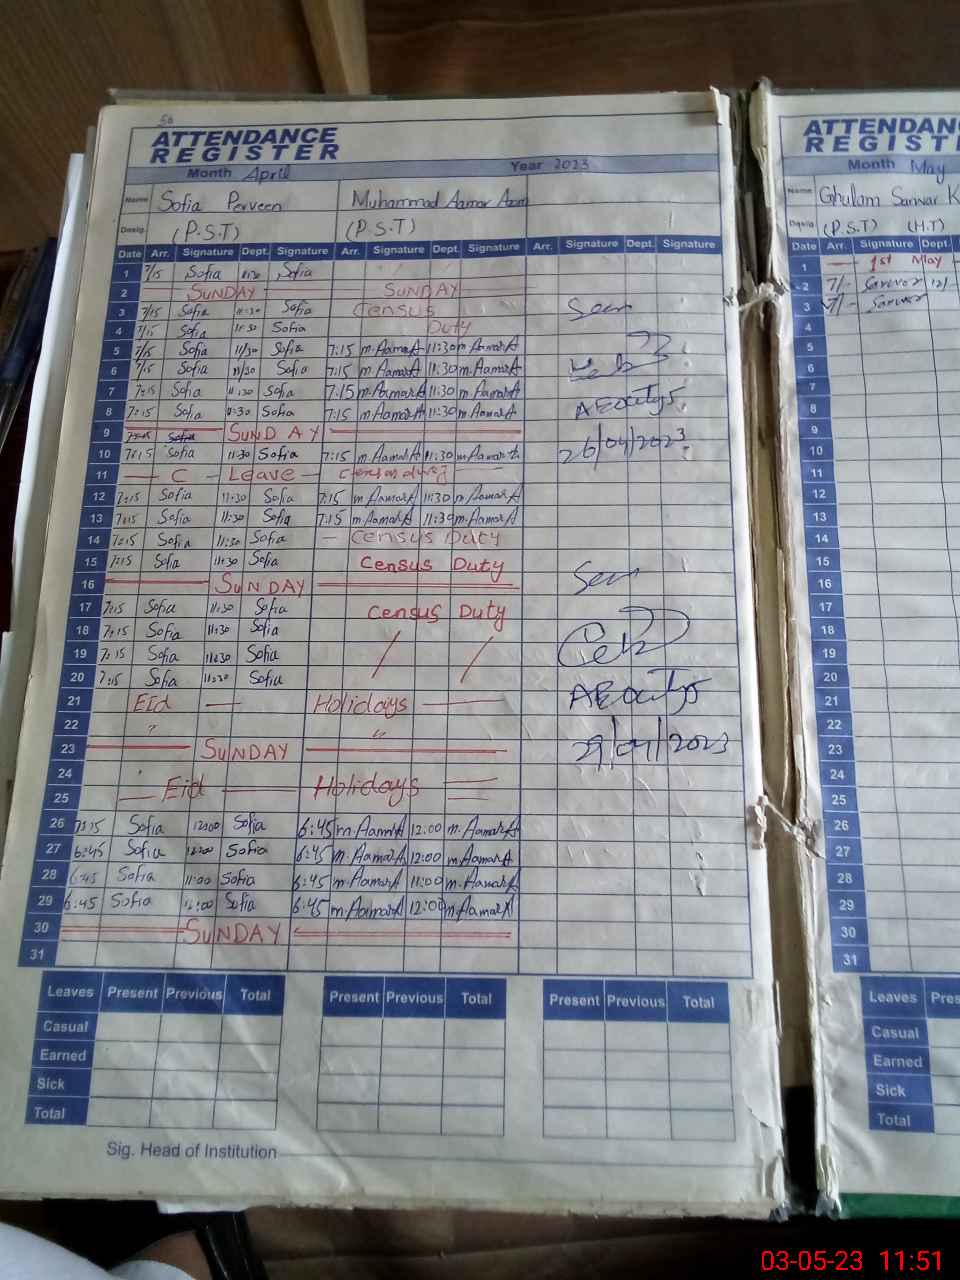 50
ATTENDANCE
REGISTER
Month April Year 2023
Name Sofia Perveen Muhammad Aamar Azam
Desig. (P.S.T) (P.S.T)
Date Arr. Signature Dept. Signature Arr. Signature Dept. Signature Arr. Signature Dept. Signature
1 7/15 Sofia 11:30 Sofia
2 SUNDAY SUNDAY
3 7/15 Sofia 11:30 Sofia Census Seen
4 7/15 Sofia 11:30 Sofia Duty
5 7/15 Sofia 11/30 Sofia 7:15 m.AamarA 11:30 m.AamarA
6 7/15 Sofia 11/30 Sofia 7:15 m.AamarA 11:30 m.AamarA
7 7:15 Sofia 11:30 Sofia 7:15 m.AamarA 11:30 m.AamarA
8 7:15 Sofia 11:30 Sofia 7:15 m.AamarA 11:30 m.AamarA
9 Sofia SUNDAY
10 7:15 Sofia 11:30 Sofia 7:15 m.AamarA 11:30 m.AamarA 26/04/2023
11 C Leave Census duty
12 7:15 Sofia 11:30 Sofia 7:15 m.AamarA 11:30 m.AamarA
13 7:15 Sofia 11:30 Sofia 7:15 m.AamarA 11:30 m.AamarA
14 7:15 Sofia 11:30 Sofia Census Duty
15 7:15 Sofia 11:30 Sofia Census Duty
16 SUNDAY Seen
17 7:15 Sofia 11:30 Sofia Census Duty
18 7:15 Sofia 11:30 Sofia
19 7:15 Sofia 11:30 Sofia
20 7:15 Sofia 11:30 Sofia
21 Eid Holidays
22 " "
23 SUNDAY 29/04/2023
24
Eid Holidays
25
26 7:15 Sofia 12:00 Sofia 6:45 m.AamarA 12:00 m.AamarA
27 6:45 Sofia 12:00 Sofia 6:45 m.AamarA 12:00 m.AamarA
28 6:45 Sofia 11:00 Sofia 6:45 m.AamarA 11:00 m.AamarA
29 6:45 Sofia 12:00 Sofia 6:45 m.AamarA 12:00 m.AamarA
30 SUNDAY
31
Leaves Present Previous Total Present Previous Total Present Previous Total
Casual
Earned
Sick
Total
Sig. Head of Institution
ATTENDAN
REGISTE
Month May
Name Ghulam Sarwar K
Desig. (P.S.T) (H.T)
Date Arr. Signature Dept.
1 1st May
2 7/- Sarwar 12/-
3 7/- Sarwar
4
5
6
7
8
9
10
11
12
13
14
15
16
17
18
19
20
21
22
23
24
25
26
27
28
29
30
31
Leaves Pres
Casual
Earned
Sick
Total
03-05-23 11:51